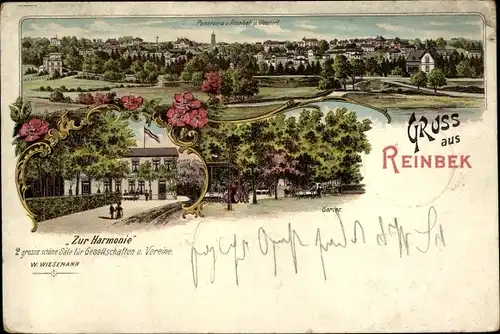 Panorama v. Reinbek u. Wentorf.
Gruss
aus
Reinbek
Garten
„Zur Harmonie"
2 grosse schöne Säle für Gesellschaften u. Vereine.
W. Wiesemann